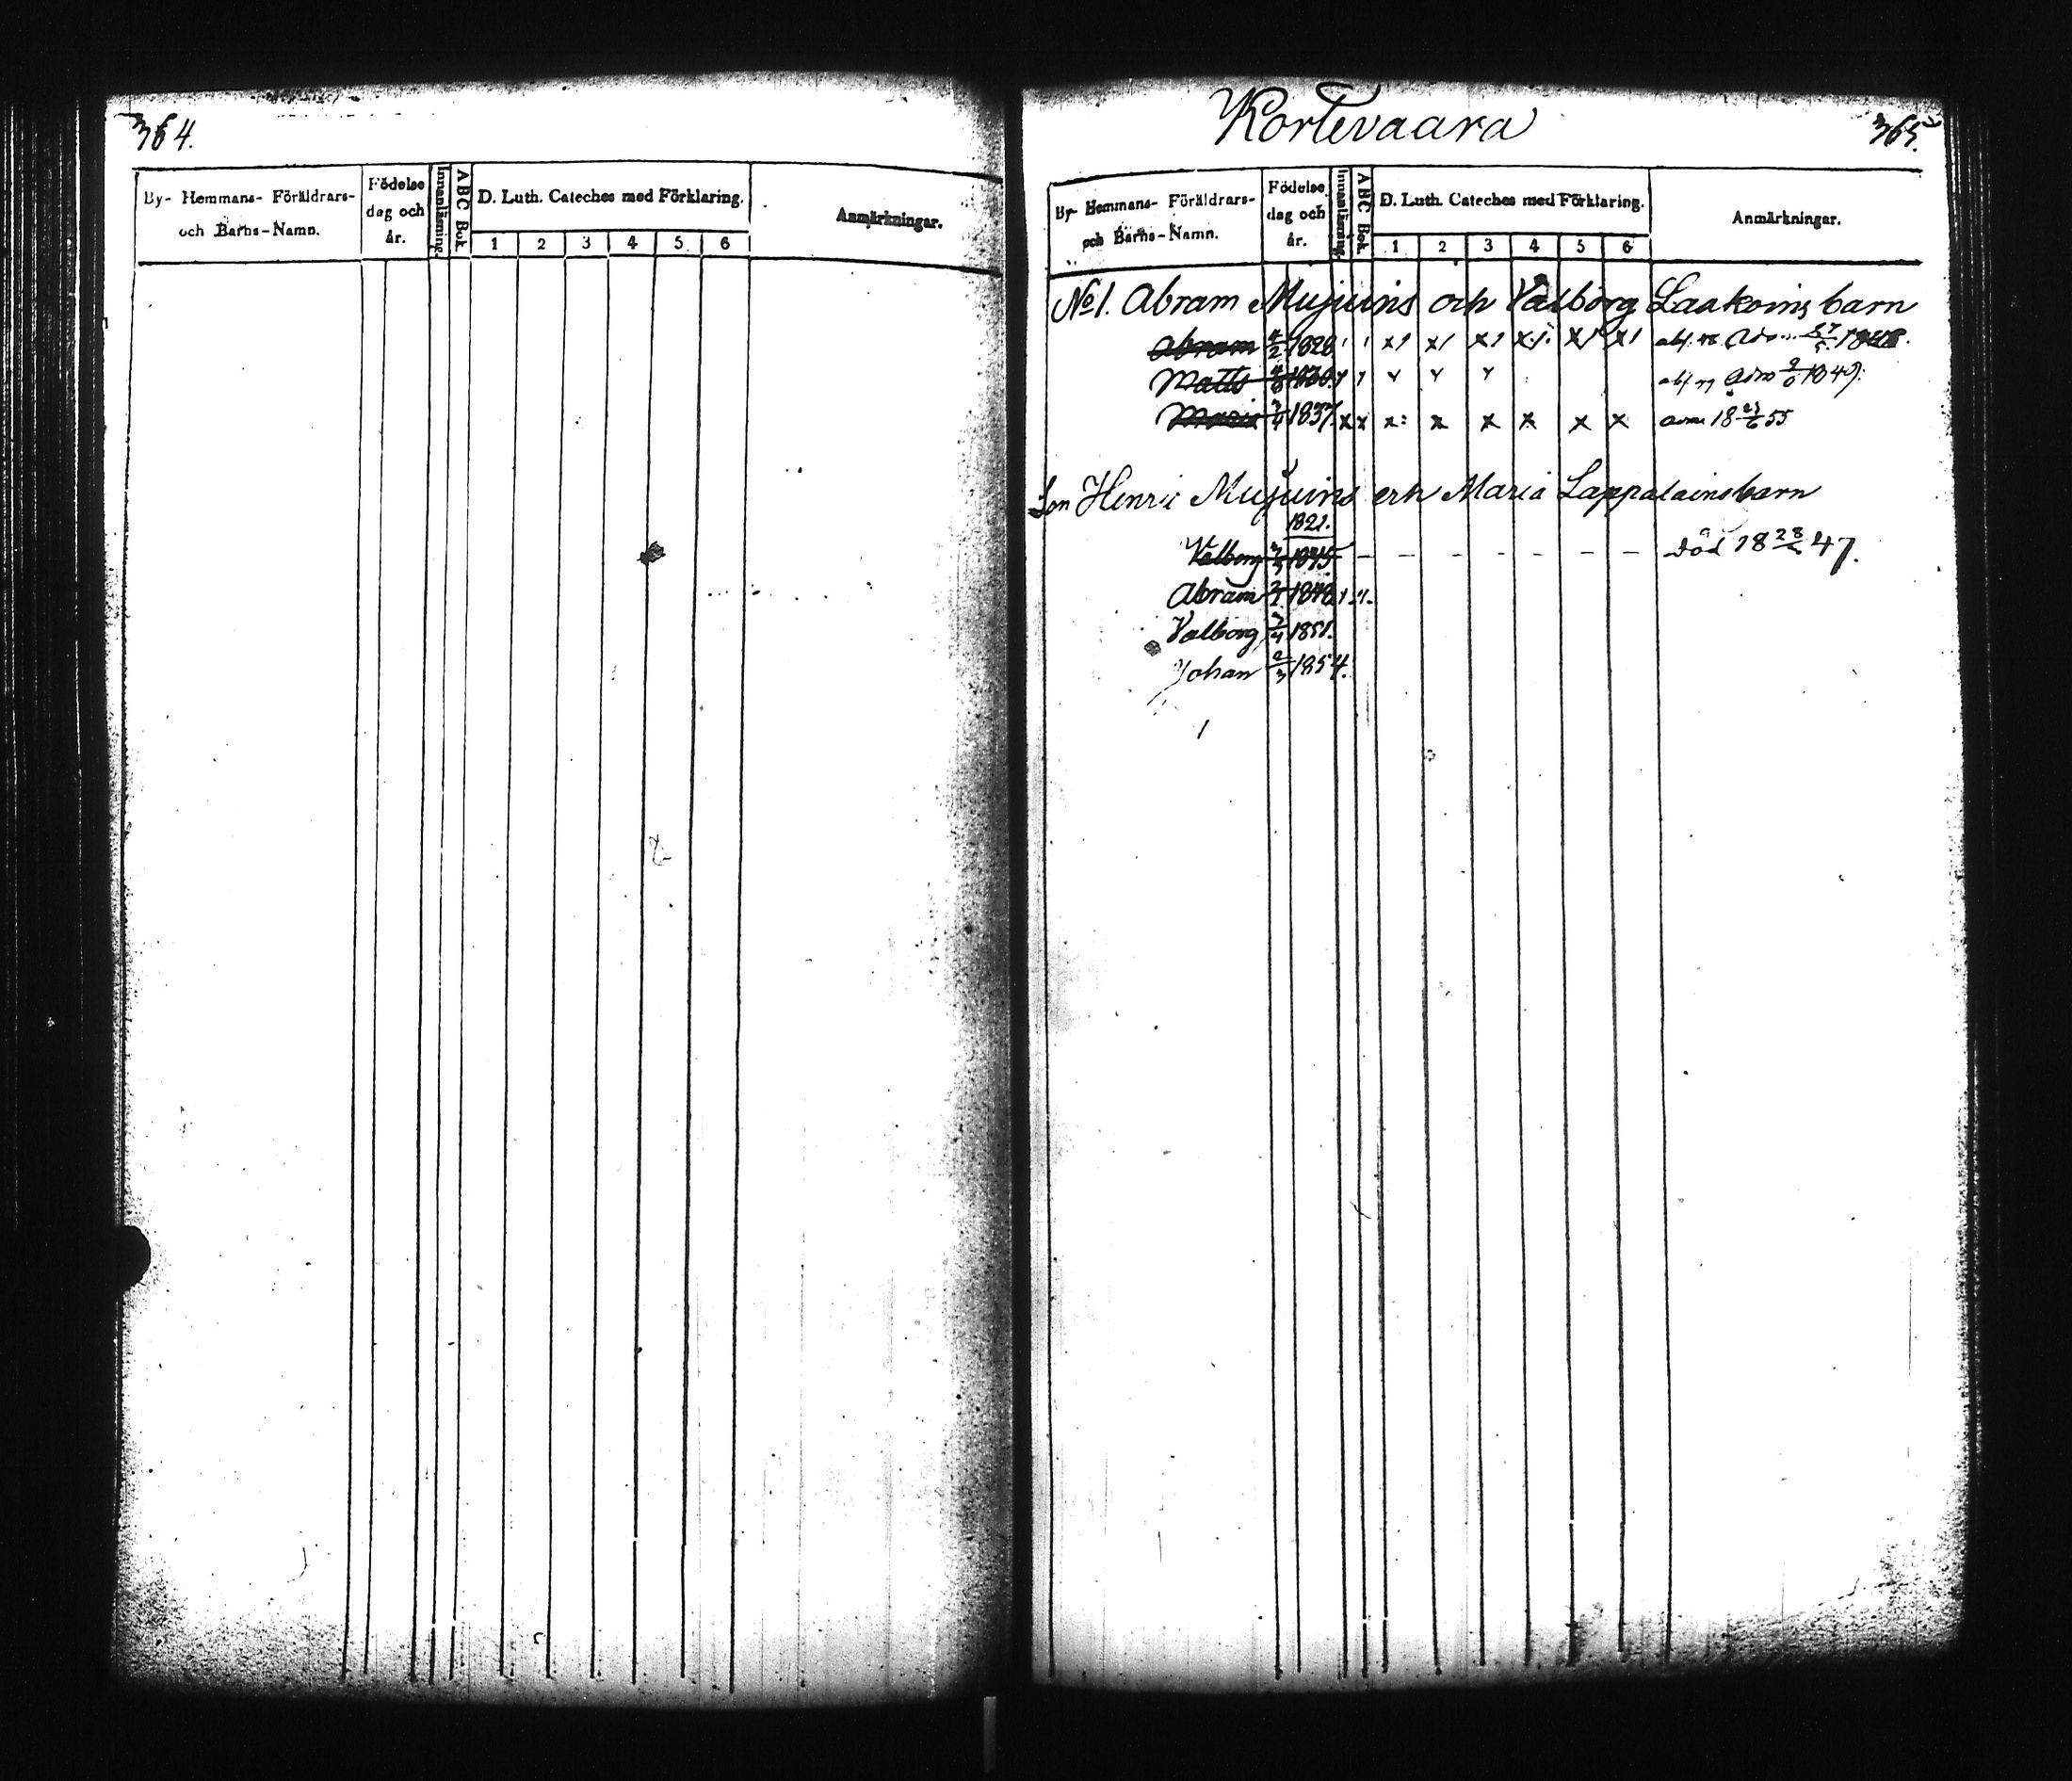 364.
By- Hemmans- Föräldrars- och Barns-Namn. Födelse dag och år. Innanläsning. A B C Bok. D. Luth. Cateches med Förklaring. Anmärkningar.
1 2 3 4 5 6
Kortevaara 365.
By- Hemmans- Föräldrars- och Barns-Namn. Födelse dag och år. Innanläsning. A B C Bok. D. Luth. Cateches med Förklaring. Anmärkningar.
1 2 3 4 5 6
No 1. Abram Mujuins och Valborg Laakoins barn
Abram 4/2 1828
Matts adm 1849.
Maria 3/4 1837. x x x: x x x x x adm. 18 55
Son Henric Mujuins och Maria Lappalains barn
1821.
Valborg 1845 – – – – – – – död 18 28 47.
Abram 1848
Valborg 3/4 1851.
Johan 2/3 1854.